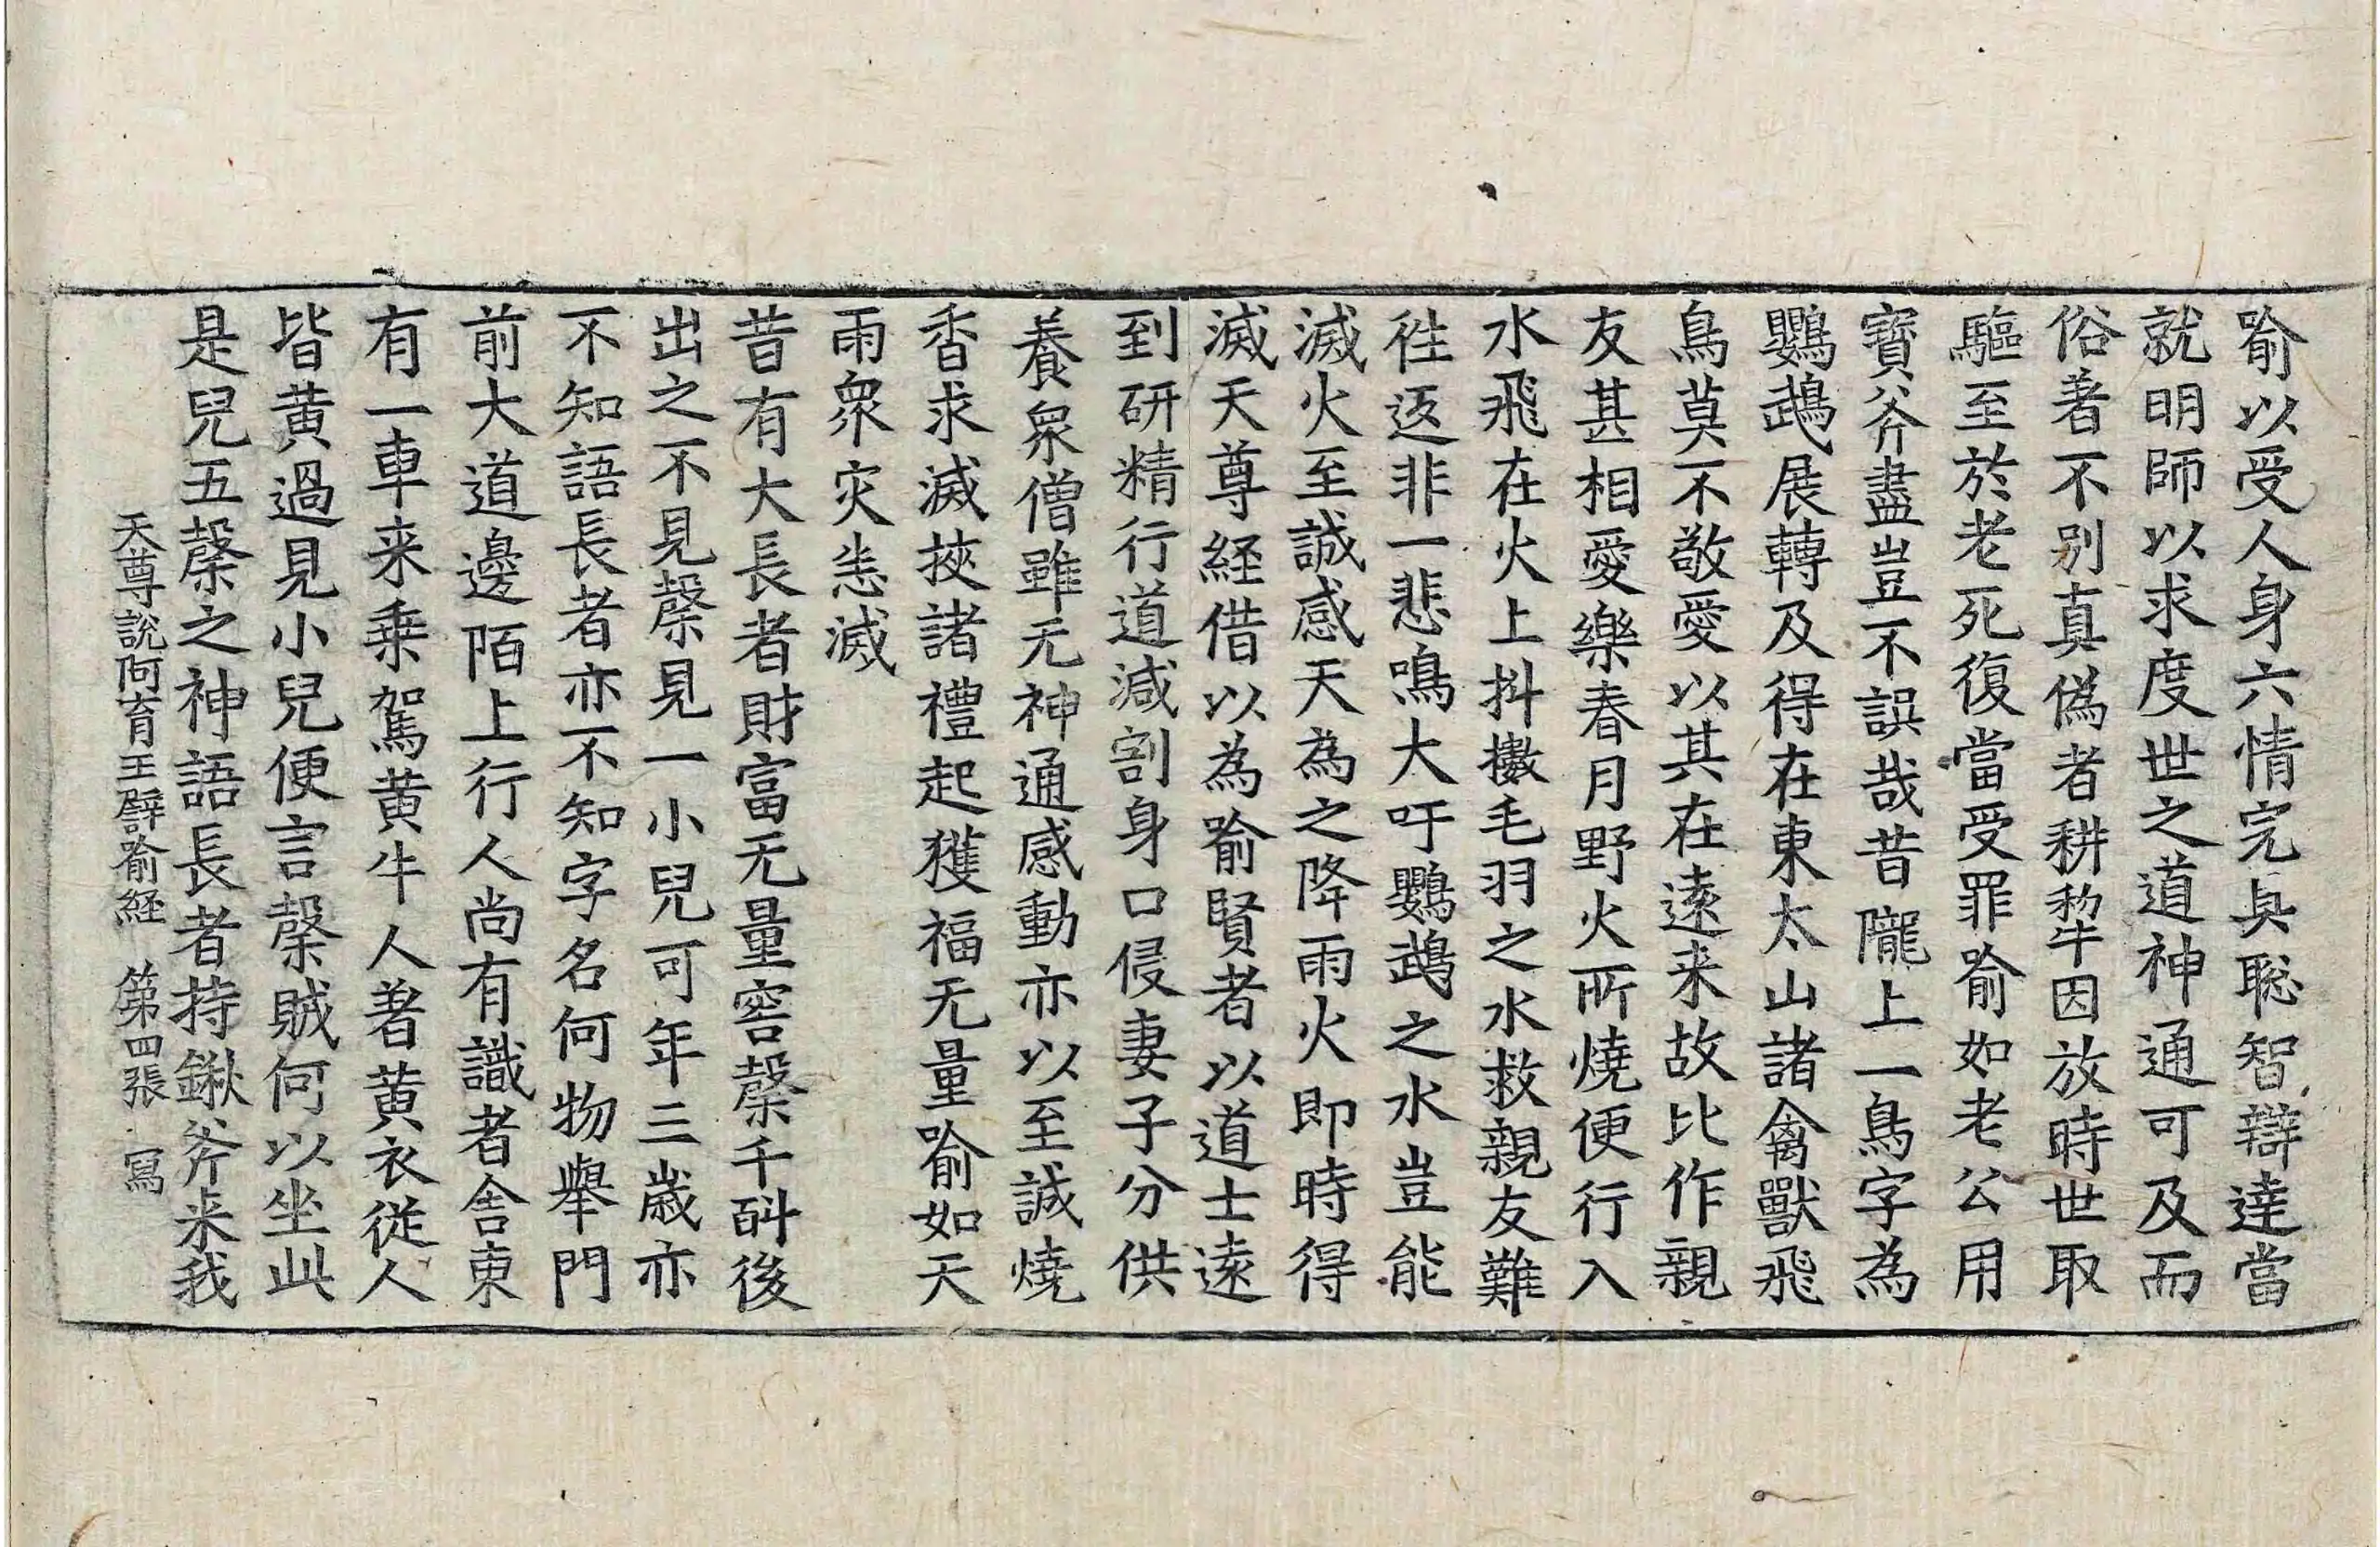 喻以受人身六情完具聡智辯達當
就明師以求度世之道神通可及而
俗著不別真偽者耕犂因放時世取
驅至於老死復當受罪喻如老公用
寶斧盡豈不誤哉昔隴上一鳥字為
鸚鵡展轉及得在東太山諸禽獸飛
鳥莫不敬愛以其在遠来故比作親
友甚相愛樂春月野火所燒便行入
水飛在火上抖擻毛羽之水救親友難
徃返非一悲鳴大吁鸚鵡之水豈能
滅火至誠感天為之降雨火即時得
滅天尊経借以為喻賢者以道士遠
到研精行道減割身口侵妻子分供
養衆僧雖无神通感動亦以至誠燒
香求滅挾諸禮起獲福无量喻如天
雨衆灾恙滅
昔有大長者財富无量窖䅽千斛後
出之不見䅽見一小兒可年三歲亦
不知語長者亦不知字名何物舉門
前大道邊陌上行人尚有識者舎東
有一車来乗駕黄牛人著黄衣従人
皆黄過見小兒便言䅽賊何以坐此
是兒五䅽之神語長者持鍬斧来我
天尊説阿育王譬喻経　第四張　冩